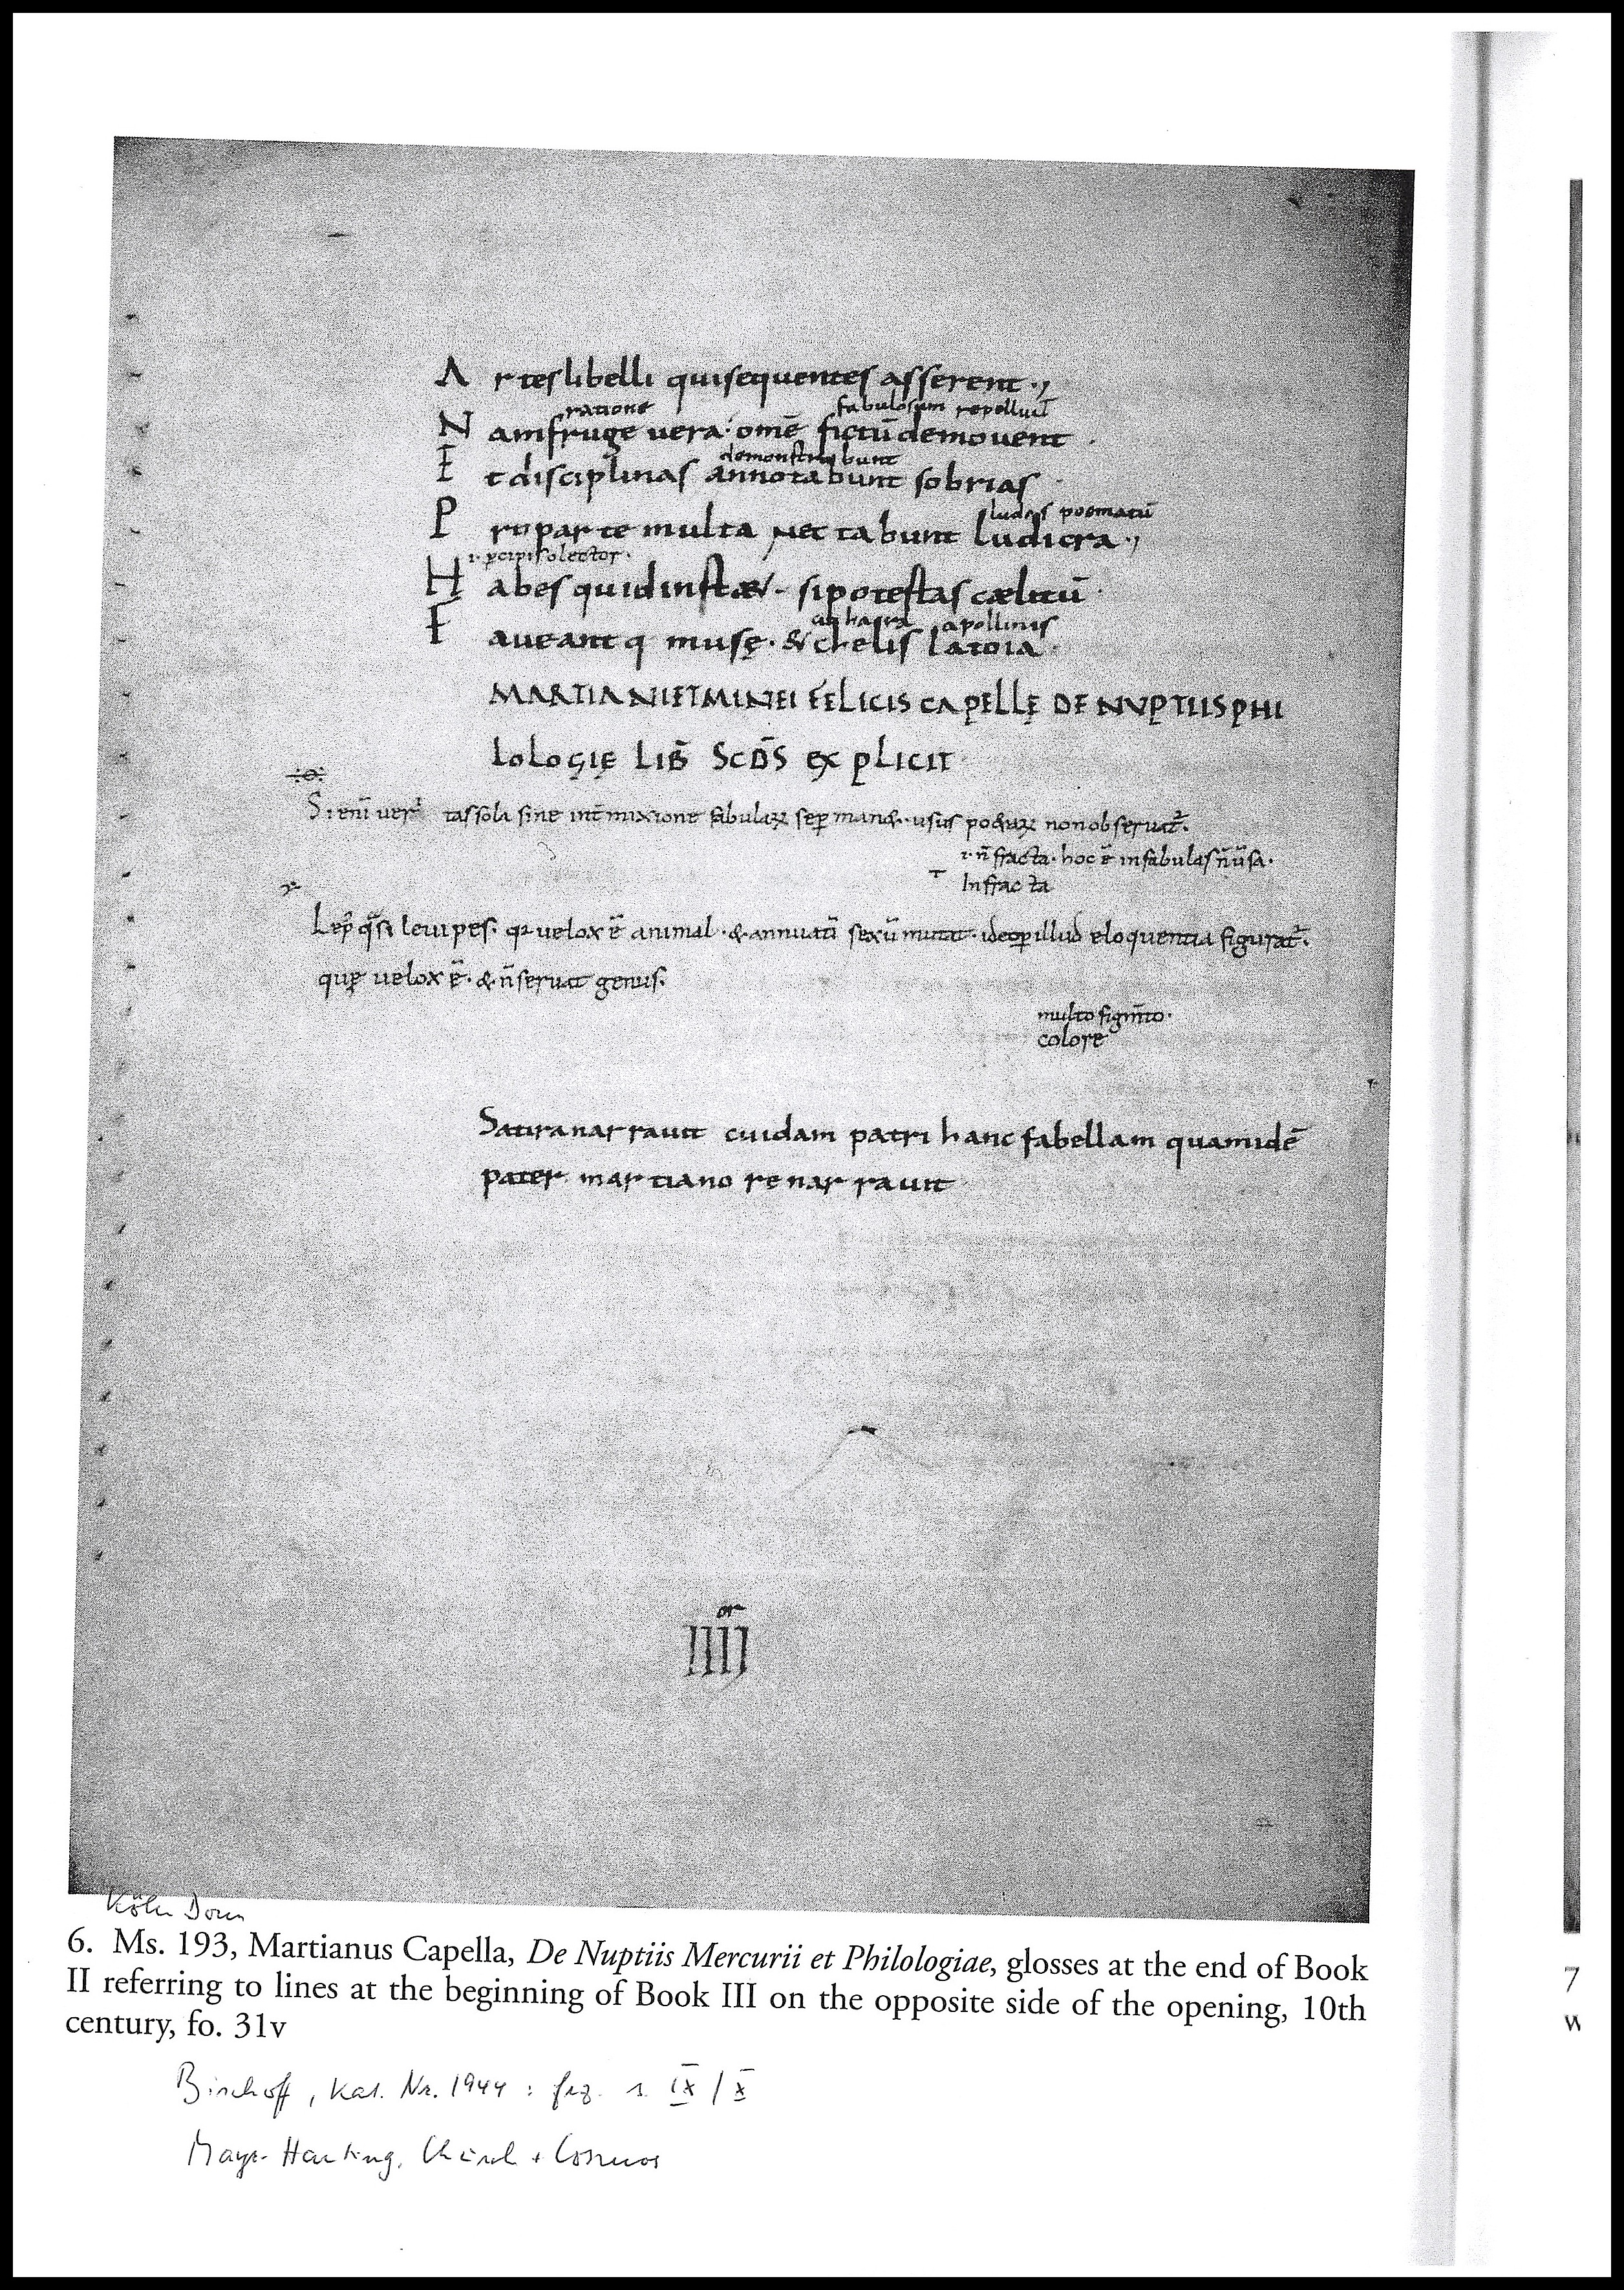 Artes libelli qui sequentes asserent·,
ratione fabulosum repellunt
Nam fruge vera omē fictū demovent·
demonstrabunt
Et disciplinas annotabunt sobrias
ludos poematū
Pro parte multa nec tabunt ludicra·,
.i. pcipis o lector·
Habes quid instat si potestas cælitū·
cithara apollinis
Faveant q musę· & chelis latoia·
MARTIANI ET MINEI FELICIS CAPELLĘ DE NVPTIIS PHI
LOLOGIĘ LIB̄ SCD̄S EXPLICIT
Si enī veritas sola sine int̄mixione fabulaꝝ sep̄ man&· usus po&aꝝ non observat̄·
.i. n̄ fracta· hoc ē in fabulas n̄ ūsa·
Infracta
Lep̄ q̄si levipes· qꝛ velox ē animal· & annuatī sexū mutat· ideo p illud eloquentia figurat̄·
quę velox ē· & n̄ servat genus·
multo figm̄to·
colore
Satira narravit cuidam patri hanc fabellam quam idē
pater martiano renarravit
or
IIIJ
Köln Dom
6. Ms. 193, Martianus Capella, De Nuptiis Mercurii et Philologiae, glosses at the end of Book
II referring to lines at the beginning of Book III on the opposite side of the opening, 10th
century, fo. 31v
Bischoff, Kat. Nr. 1944 : frz. s. IX / X
Mayr-Harting, Church + Cosmos
7
w